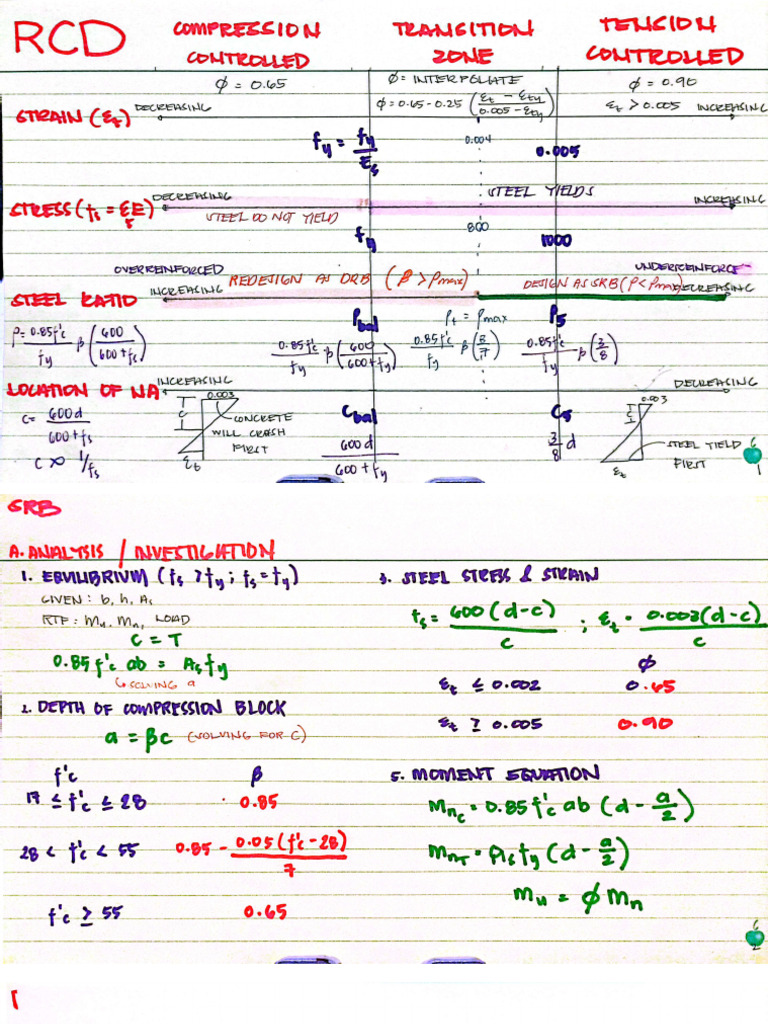 RCD
COMPRESSION CONTROLLED
TRANSITION ZONE
TENSION CONTROLLED
φ = 0.65
φ = INTERPOLATE
φ = 0.65 - 0.25 (εt - εty / 0.005 - εty)
φ = 0.90
εt > 0.005 INCREASING
STRAIN (εt)
DECREASING
fy = fy / Es
0.004
0.005
STRESS (fs = εE)
s
DECREASING
STEEL DO NOT YIELD
STEEL YIELDS
INCREASING
fy
800
1000
OVERREINFORCED
UNDERREINFORCE
STEEL RATIO
INCREASING
REDESIGN AS DRB (ρ > ρmax)
DESIGN AS SRB (ρ < ρmax) DECREASING
ρbal
ρt = ρmax
ρ5
ρ = 0.85f'c / fy β (600 / 600 + fs)
0.85f'c / fy β (600 / 600 + fy)
0.85f'c / fy β (3/7)
0.85f'c / fy β (3/8)
LOCATION OF NA
INCREASING
DECREASING
c = 600d / 600 + fs
c ∞ 1/fs
c
0.003
CONCRETE WILL CRUSH FIRST
εt
Cbal
600d / 600 + fy
C5
3/8 d
0.003
STEEL YIELD FIRST
εt
6
1
SRB
A. ANALYSIS / INVESTIGATION
1. EQUILIBRIUM (fs > fy ; fs = fy)
GIVEN : b, h, As
RTF : Mu, Mn, LOAD
C = T
0.85 f'c ab = As fy
SOLVING a
2. DEPTH OF COMPRESSION BLOCK
a = βc (SOLVING FOR C)
f'c β
17 ≤ f'c ≤ 28 0.85
28 < f'c < 55 0.85 - 0.05 (f'c - 28) / 7
f'c ≥ 55 0.65
3. STEEL STRESS & STRAIN
fs = 600 (d - c) / c ; εt = 0.003 (d - c) / c
φ
εt ≤ 0.002 0.65
εt ≥ 0.005 0.90
5. MOMENT EQUATION
Mnc = 0.85 f'c ab (d - a/2)
MnT = As fy (d - a/2)
Mu = φ Mn
6
2